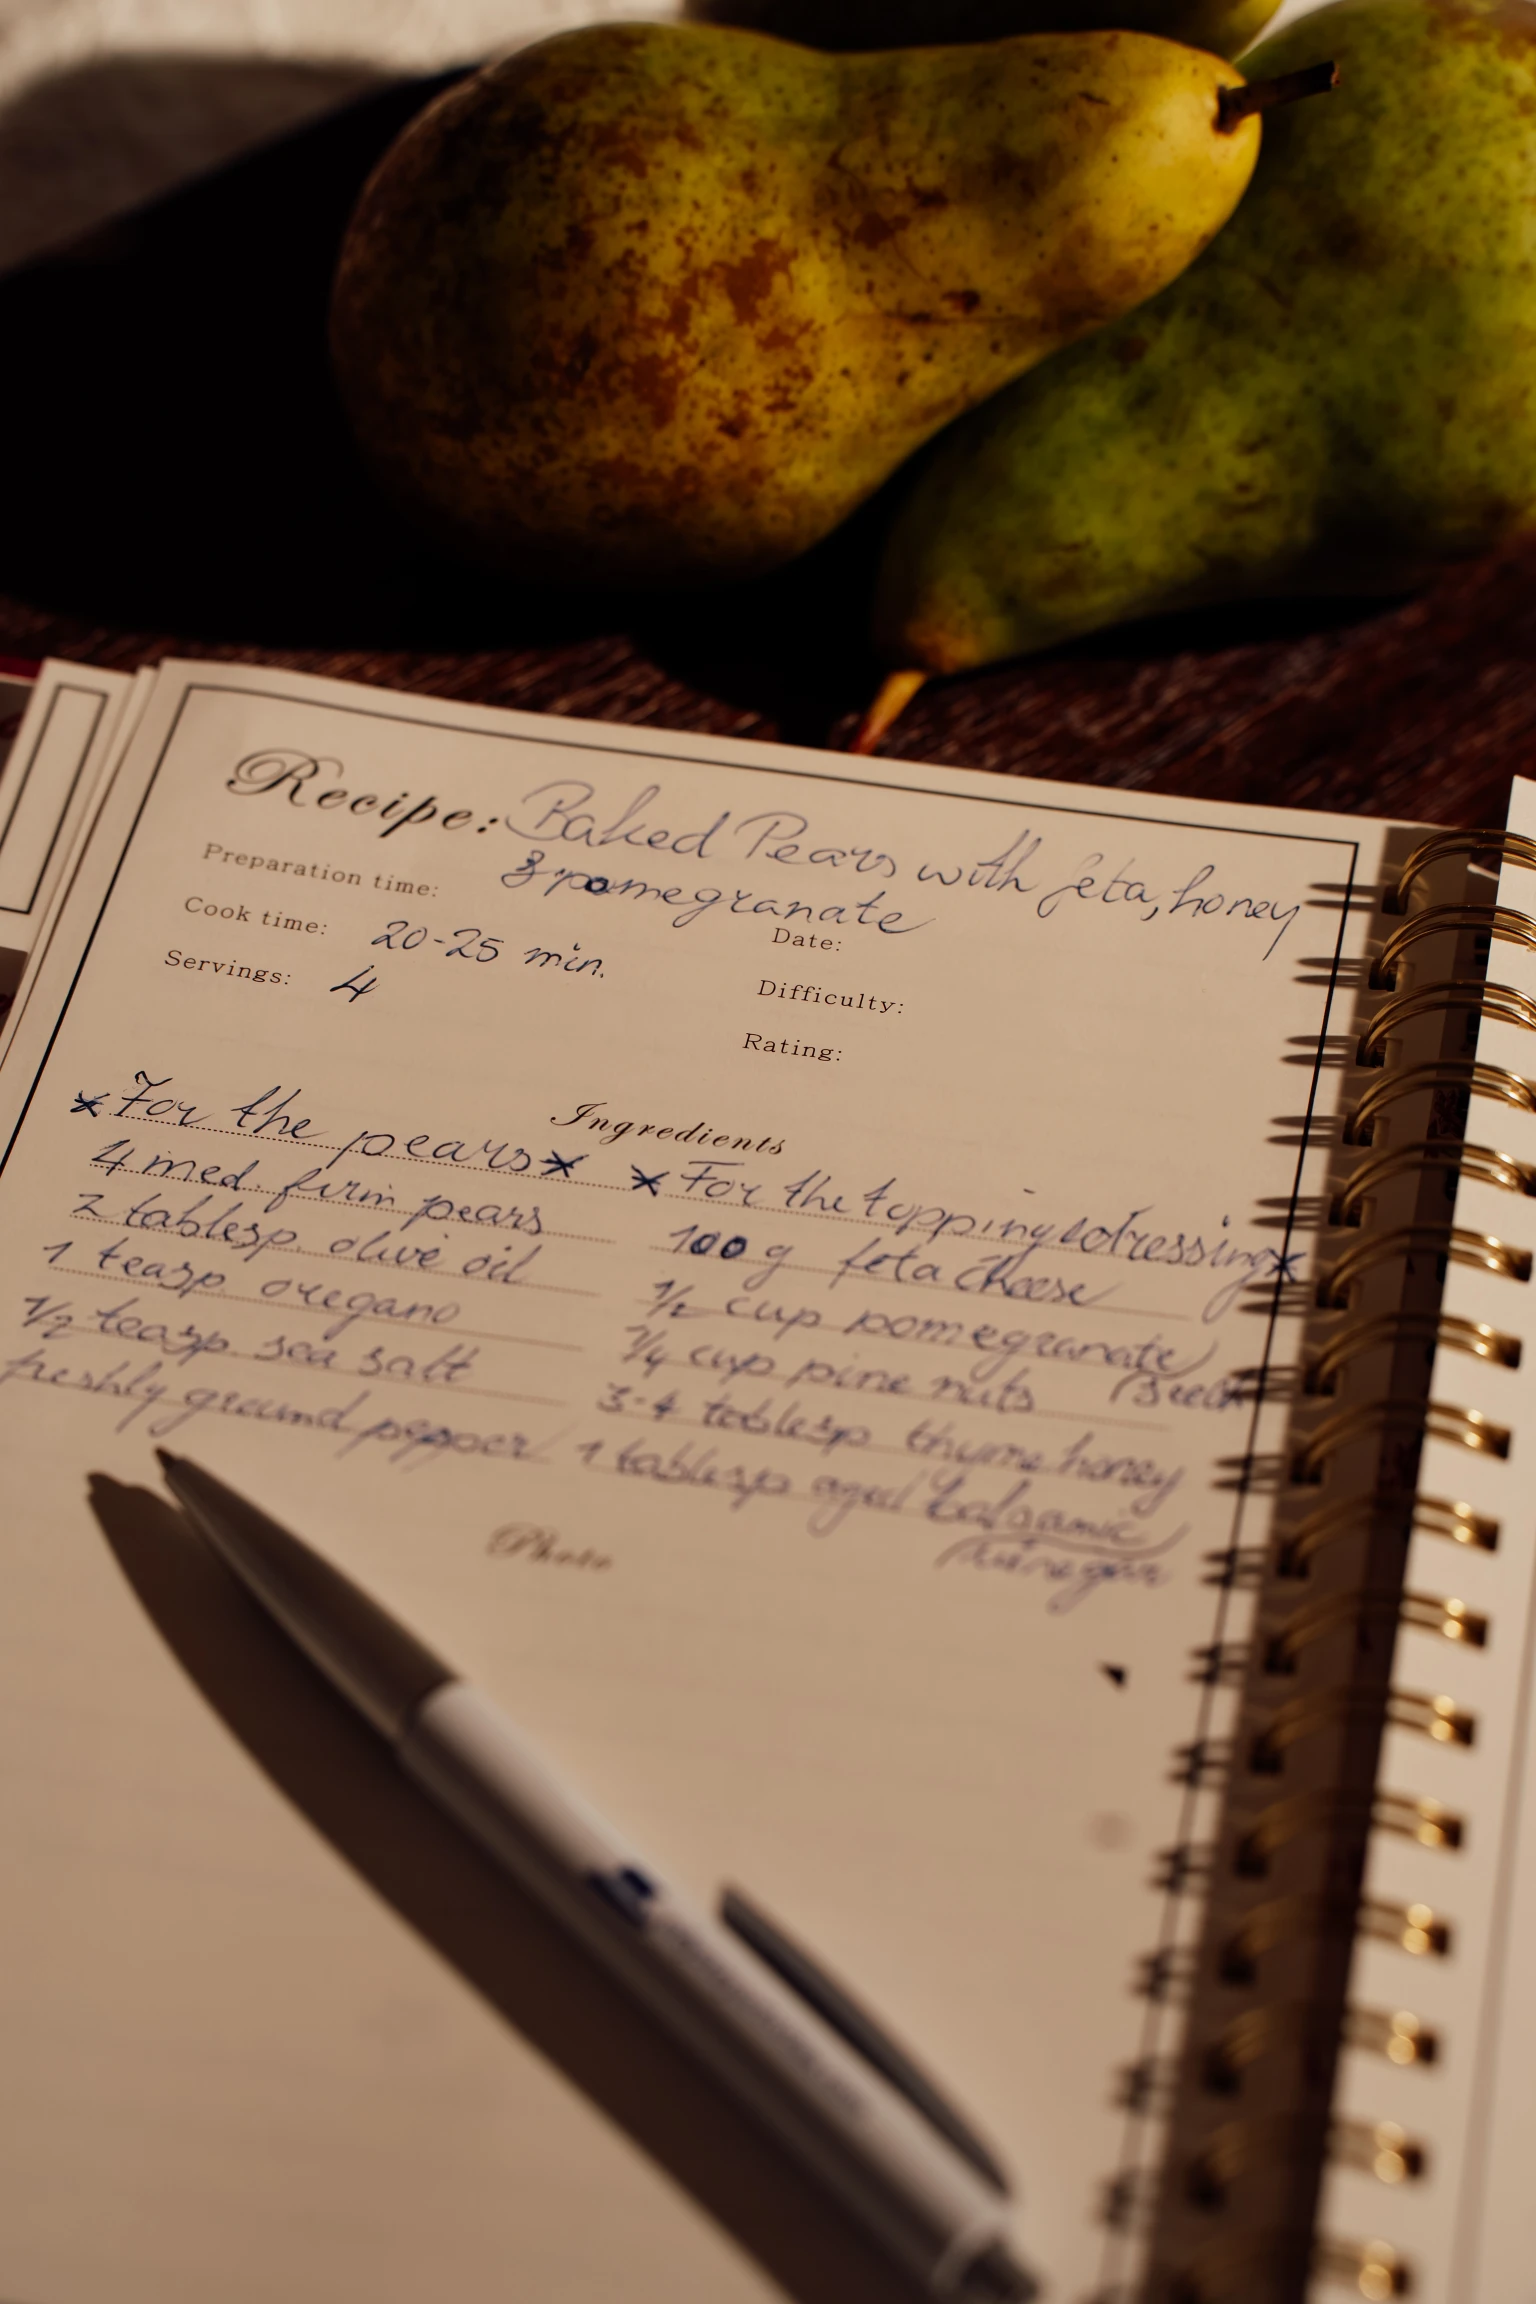 Recipe: Baked Pears with feta, honey
& pomegranate
Preparation time:
Cook time: 20-25 min.
Servings: 4
Date:
Difficulty:
Rating:
Ingredients
*For the pears*
4 med. firm pears
2 tablesp. olive oil
1 teasp. oregano
1/2 teasp. sea salt
freshly ground pepper
*For the topping & dressing*
100 g feta cheese
1/2 cup pomegranate
1/4 cup pine nuts
3-4 tablesp thyme honey
1 tablesp aged balsamic
vinegar
Photo